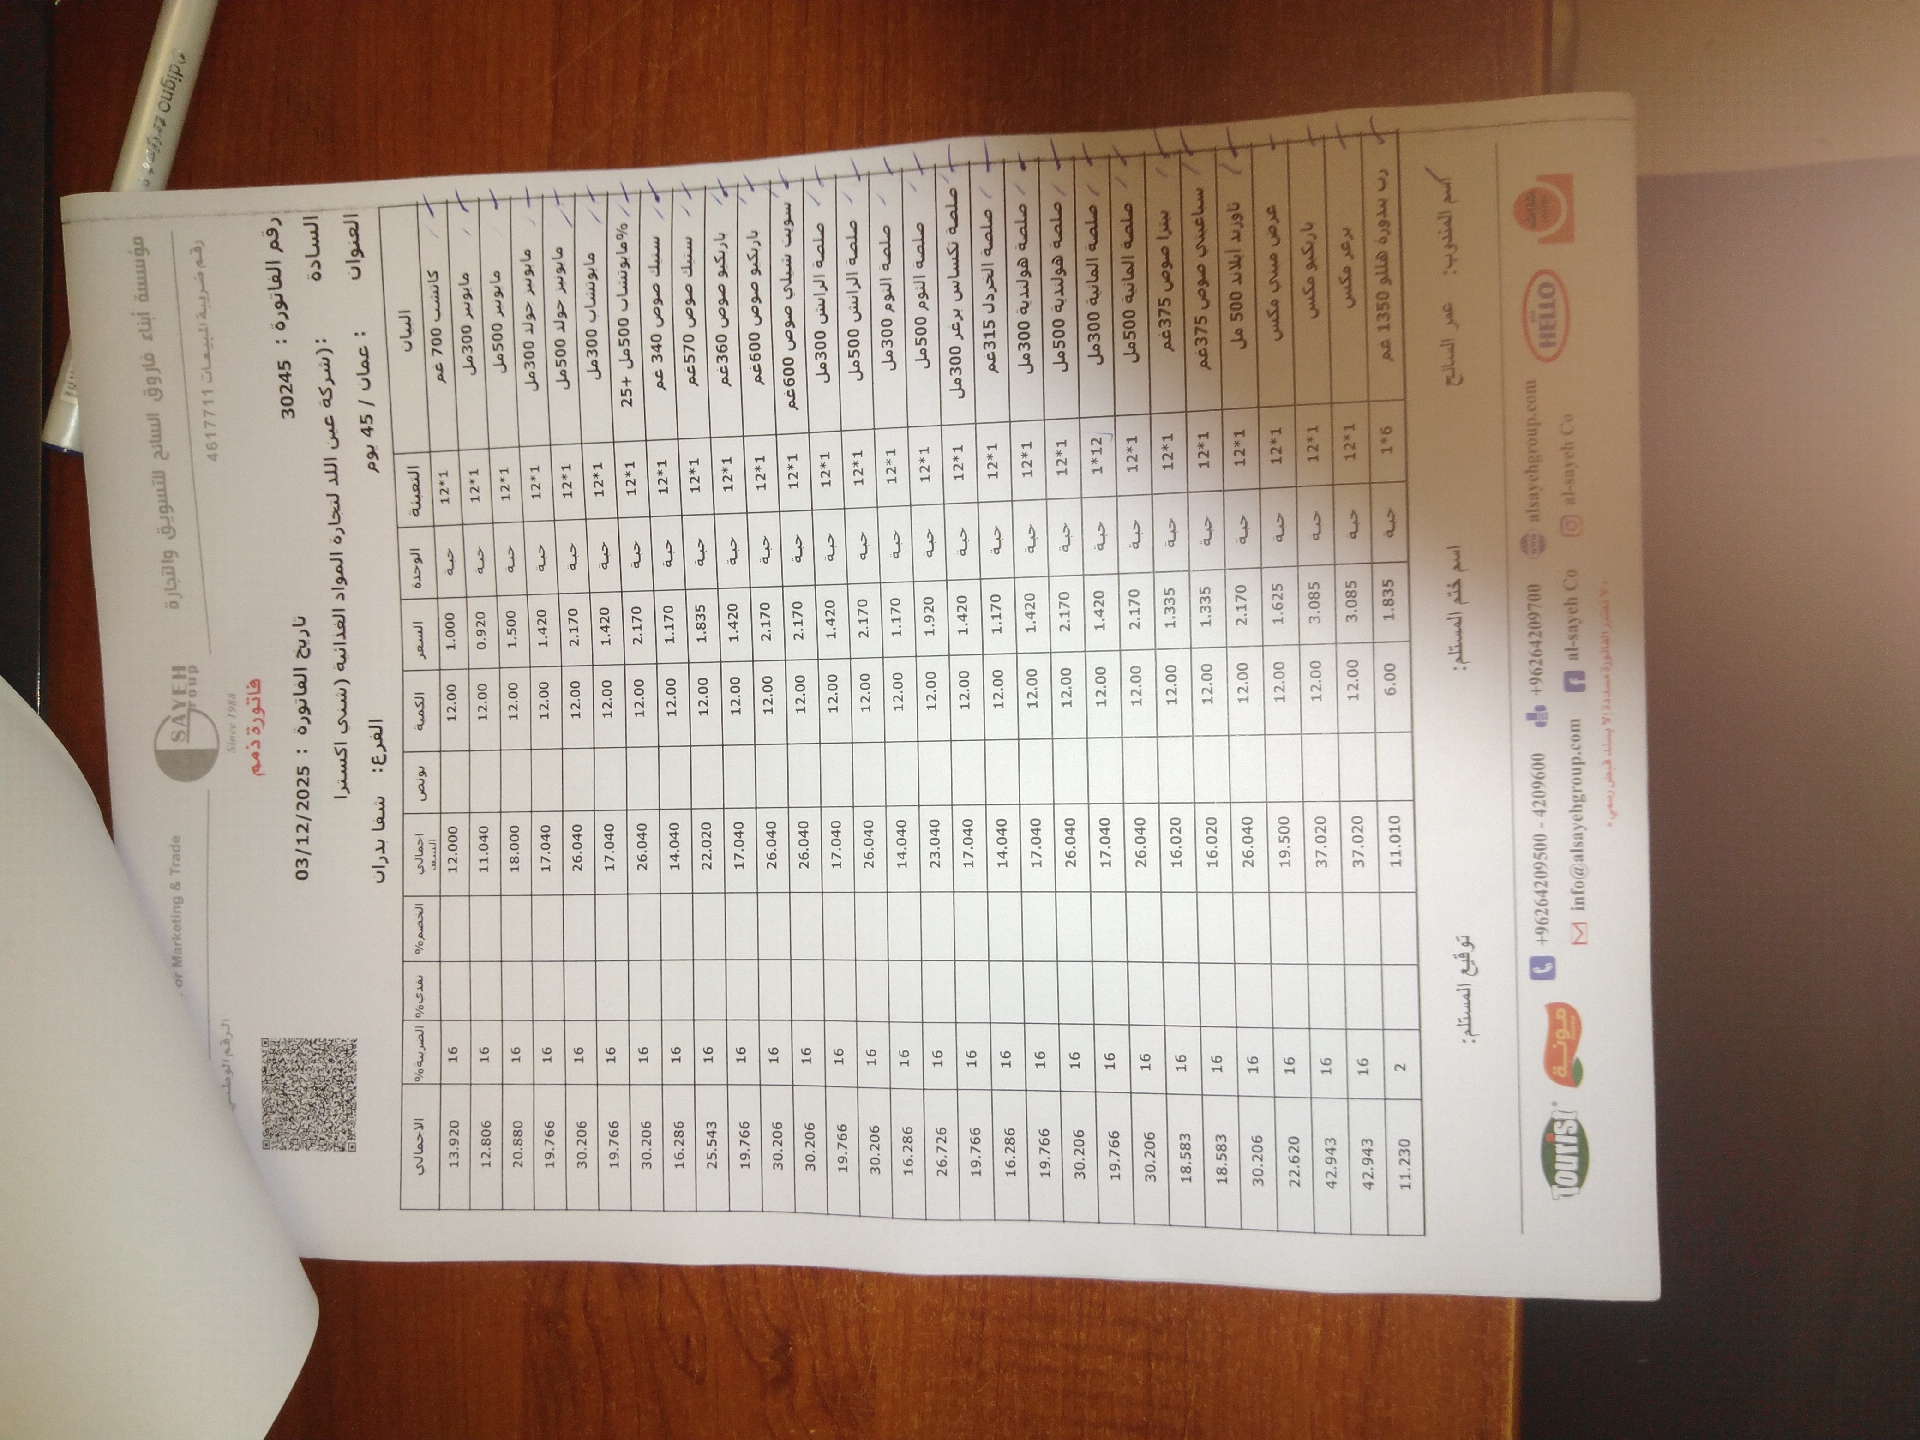 مؤسسة أبناء فاروق السائح للتسويق والتجارة
SAYEH
Group
Since 1988
or Marketing & Trade
رقم ضريبة المبيعات 4617711
الرقم الوطني
فاتورة ذمم
رقم الفاتورة : 30245
تاريخ الفاتورة : 03/12/2025
السادة :(شركة عين اللد لتجارة المواد الغذائية (شني اكسترا
العنوان : عمان / 45 يوم
الفرع: شفا بدران
البيان التعبئة الوحدة السعر الكمية بونص اجمالي السعر الخصم% نقدي% الضريبة% الاجمالي
كاتشب 700 غم 12*1 حبة 1.000 12.00 12.000 16 13.920
مايونيز 300مل 12*1 حبة 0.920 12.00 11.040 16 12.806
مايونيز 500مل 12*1 حبة 1.500 12.00 18.000 16 20.880
مايونيز جولد 300مل 12*1 حبة 1.420 12.00 17.040 16 19.766
مايونيز جولد 500مل 12*1 حبة 2.170 12.00 26.040 16 30.206
مايونشاب 300مل 12*1 حبة 1.420 12.00 17.040 16 19.766
%مايونشاب 500مل +25 12*1 حبة 2.170 12.00 26.040 16 30.206
ستيك صوص 340 غم 12*1 حبة 1.170 12.00 14.040 16 16.286
ستيك صوص 570غم 12*1 حبة 1.835 12.00 22.020 16 25.543
باربكيو صوص 360غم 12*1 حبة 1.420 12.00 17.040 16 19.766
باربكيو صوص 600غم 12*1 حبة 2.170 12.00 26.040 16 30.206
سويت شيلي صوص 600غم 12*1 حبة 2.170 12.00 26.040 16 30.206
صلصة الرانش 300مل 12*1 حبة 1.420 12.00 17.040 16 19.766
صلصة الرانش 500مل 12*1 حبة 2.170 12.00 26.040 16 30.206
صلصة الثوم 300مل 12*1 حبة 1.170 12.00 14.040 16 16.286
صلصة الثوم 500مل 12*1 حبة 1.920 12.00 23.040 16 26.726
صلصة تكساس برغر 300مل 12*1 حبة 1.420 12.00 17.040 16 19.766
صلصة الخردل 315غم 12*1 حبة 1.170 12.00 14.040 16 16.286
صلصة هولندية 300مل 12*1 حبة 1.420 12.00 17.040 16 19.766
صلصة هولندية 500مل 12*1 حبة 2.170 12.00 26.040 16 30.206
صلصة المانية 300مل 1*12 حبة 1.420 12.00 17.040 16 19.766
صلصة المانية 500مل 12*1 حبة 2.170 12.00 26.040 16 30.206
بيتزا صوص 375غم 12*1 حبة 1.335 12.00 16.020 16 18.583
سباغيتي صوص 375غم 12*1 حبة 1.335 12.00 16.020 16 18.583
ثاوزند ايلاند 500 مل 12*1 حبة 2.170 12.00 26.040 16 30.206
عرض ميني مكس 12*1 حبة 1.625 12.00 19.500 16 22.620
باربكيو مكس 12*1 حبة 3.085 12.00 37.020 16 42.943
برغر مكس 12*1 حبة 3.085 12.00 37.020 16 42.943
رب بندورة هللو 1350 غم 1*6 حبة 1.835 6.00 11.010 2 11.230
اسم المندوب: عمر السائح
اسم ختم المستلم:
توقيع المستلم:
TOURIST
مونة
HELLO
+96264209500 - 4209600
+96264209700
alsayehgroup.com
info@alsayehgroup.com
al-sayeh Co
al-sayeh Co